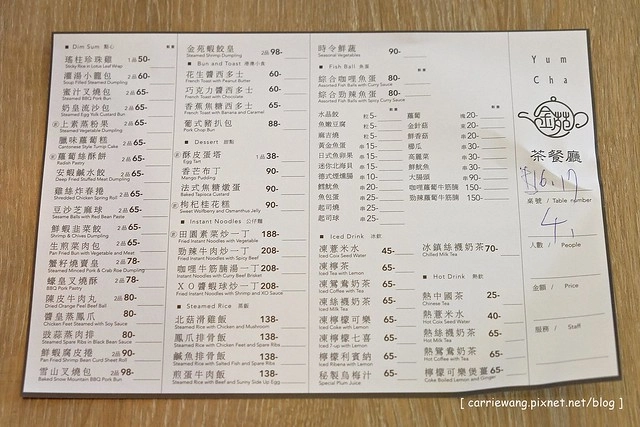 ■ Dim Sum 點心
瑤柱珍珠雞 1品 50-
Sticky Rice in Lotus Leaf Wrap
灌湯小籠包 2品 60-
Soup Filled Steamed Dumpling
蜜汁叉燒包 2品 65-
Steamed BBQ Pork Bun
奶皇流沙包 2品 65-
Steamed Egg Yolk Custard Bun
上素蒸粉果 2品 65-
Steamed Vegetable Dumpling
臘味蘿蔔糕 2品 65-
Cantonese Style Turnip Cake
蘿蔔絲酥餅 2品 65-
Radish Pastry
安蝦鹹水餃 2品 65-
Deep Fried Stuffed Meat Dumpling
雞絲炸春捲 2品 65-
Shredded Chicken Spring Roll
豆沙芝麻球 2品 65-
Sesame Balls with Red Bean Paste
鮮蝦韭菜餃 2品 65-
Shrimp & Chives Dumpling
生煎菜肉包 2品 65-
Pan Fried Bun with Vegetable and Meat
蟹籽燒賣皇 2品 78-
Steamed Minced Pork & Crab Roe Dumpling
蠔皇叉燒酥 2品 78-
BBQ Pork Pastry
陳皮牛肉丸 2品 80-
Dried Orange Peel Beef Ball
醬皇蒸鳳爪 80-
Chicken Feet Steamed with Soy Sauce
豉蒜蒸肉排 80-
Steamed Spare Ribs in Black Bean Sauce
鮮蝦腐皮捲 2品 90-
Pan Fried Shrimp Bean Curd Sheet Roll
雪山叉燒包 2品 98-
Baked Snow Mountain BBQ Pork Bun
金苑蝦餃皇 2品 98-
Steamed Shrimp Dumpling
■ Bun and Toast 港包小食
花生醬西多士 60-
French Toast with Peanut Butter
巧克力醬西多士 60-
French Toast with Chocolate
香蕉焦糖西多士 65-
French Toast with Banana and Caramel
葡式豬扒包 88-
Pork Chop Bun
■ Dessert 甜點
酥皮蛋塔 1品 38-
Egg Tart
香芒布丁 90-
Mango Pudding
法式焦糖燉蛋 90-
Baked Tapioca Custard
枸杞桂花糕 90-
Sweet Wolfberry and Osmanthus Jelly
■ Instant Noodles 公仔麵
田園素菜炒一丁 188-
Fried Instant Noodles with Vegetable
勁辣牛肉炒一丁 208-
Fried Instant Noodles with Spicy Beef
咖哩牛筋腩湯一丁 208-
Instant Noodles with Curry Beef Brisket
XO醬蝦球炒一丁 208-
Fried Instant Noodles with Shrimp and XO Sauce
■ Steamed Rice 煲飯
北菇滑雞飯 138-
Steamed Rice with Chicken and Mushroom
鳳爪排骨飯 138-
Steamed Rice with Chicken Feet and Spare Ribs
鹹魚排骨飯 138-
Steamed Rice with Salted Fish and Spare Ribs
煎蛋牛肉飯 138-
Steamed Rice with Beef and Sunny Side Up Egg
時令鮮蔬 90-
Seasonal Vegetables
■ Fish Ball 魚蛋
綜合咖哩魚蛋 80-
Assorted Fish Balls with Curry Sauce
綜合勁辣魚蛋 80-
Assorted Fish Balls with Spicy Curry Sauce
水晶餃 粒 5-
魚嫩豆腐 粒 5-
麻吉燒 粒 5-
黃金魚蛋 串 15-
日式魚卵果 串 15-
迷你北海貝 串 15-
德式燻燻腸 串 10-
鱈魷魚 串 20-
魚包蛋 串 25-
起司燒 串 25-
起司球 串 25-
蘿蔔 塊 20-
金針菇 束 20-
鮮香菇 串 20-
櫛瓜 串 30-
高麗菜 串 30-
鮮魷魚 串 30-
大腸頭 串 90-
咖哩蘿蔔牛筋腩 150-
勁辣蘿蔔牛筋腩 150-
■ Iced Drink 冰飲
凍薏米水 45-
Iced Coix Seed Water
凍檸茶 65-
Iced Tea with Lemon
凍鴛鴦奶茶 65-
Iced Coffee with Tea
凍絲襪奶茶 65-
Iced Milk Tea
凍檸檬可樂 65-
Iced Coke with Lemon
凍檸檬七喜 65-
Iced 7-up with Lemon
檸檬利賓納 65-
Iced Ribena with Lemon
秘製烏梅汁 65-
Special Plum Juice
冰鎮絲襪奶茶 70-
Chilled Milk Tea
■ Hot Drink 熱飲
熱中國茶 25-
Chinese Tea
熱薏米水 40-
Hot Coix Seed Water
熱絲襪奶茶 65-
Hot Milk Tea
熱鴛鴦奶茶 65-
Hot Coffee with Tea
檸檬可樂煲薑 65-
Coke Boiled Lemon and Ginger
Yum
Cha
金苑
茶餐廳
桌號 / Table number
4
人數 / People
金額 / Price
服務 / Staff
[ carriewang.pixnet.net/blog ]